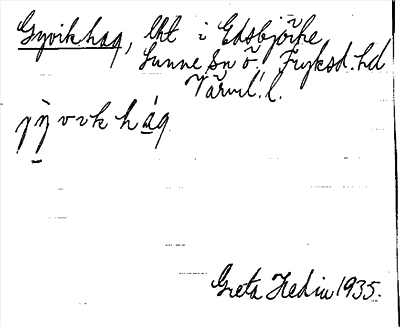 Gyvikhag, lht i Edsbjörke
Sunne sn ö. Fryksd. hd
Värml. l.
jỳvvkhág
Greta Hedin 1935.